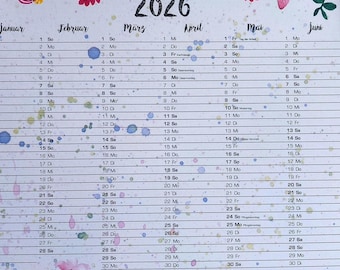 2026
Januar Februar März April Mai Juni
1 So 1 So 1 Mi 1 Fr 1 Mo
2 Mo 2 Mo 2 Do 2 Sa 2 Di
3 Di 3 Di 3 Fr 3 So 3 Mi
4 Mi 4 Mi 4 Sa 4 Mo 4 Do
5 Do 5 Do 5 So 5 Di 5 Fr
6 Fr 6 Fr 6 Mo 6 Mi 6 Sa
7 Sa 7 Sa 7 Di 7 Do 7 So
8 So 8 So 8 Mi 8 Fr 8 Mo
9 Mo 9 Mo 9 Do 9 Sa 9 Di
10 Di 10 Di 10 Fr 10 So 10 Mi
11 Mi 11 Mi 11 Sa 11 Mo 11 Do
12 Do 12 Do 12 So 12 Di 12 Fr
13 Fr 13 Fr 13 Mo 13 Mi 13 Sa
14 Sa 14 Sa 14 Di 14 Do 14 So
15 So 15 So 15 Mi 15 Fr 15 Mo
16 Mo 16 Mo 16 Do 16 Sa 16 Di
17 Di 17 Di 17 Fr 17 So 17 Mi
18 Mi 18 Mi 18 Sa 18 Mo 18 Do
19 Do 19 Do 19 So 19 Di 19 Fr
20 Fr 20 Fr 20 Mo 20 Mi 20 Sa
21 Sa 21 Sa 21 Di 21 Do 21 So
22 So 22 So 22 Mi 22 Fr 22 Mo
23 Mo 23 Mo 23 Do 23 Sa 23 Di
24 Di 24 Di 24 Fr 24 So 24 Mi
25 Mi 25 Mi 25 Sa 25 Mo 25 Do
26 Do 26 Do 26 So 26 Di 26 Fr
27 Fr 27 Fr 27 Mo 27 Mi 27 Sa
28 Sa 28 Sa 28 Di 28 Do 28 So
29 So 29 Mi 29 Fr 29 Mo
30 Mo 30 Do 30 Sa 30 Di